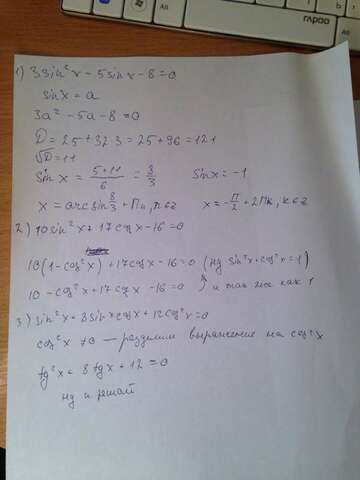 rapoo
1) 3sin²x - 5sinx - 8 = 0
sinx = a
3a² - 5a - 8 = 0
D = 25 + 32·3 = 25 + 96 = 121
√D = 11
Sinx = (5+11)/6 = 8/3    Sinx = -1
x = arcsin 8/3 + Пn, n∈z    x = -П/2 + 2Пk, k∈z
2) 10sin²x + 17cosx - 16 = 0
10(1 - cos²x) + 17cosx - 16 = 0 (из sin²x + cos²x = 1)
10 - cos²x + 17cosx - 16 = 0 и так же как 1
3) sin²x + 8sinxcosx + 12cos²x = 0
cos²x ≠ 0 — разделим выражение на cos²x
tg²x + 8tgx + 12 = 0
ну и решай